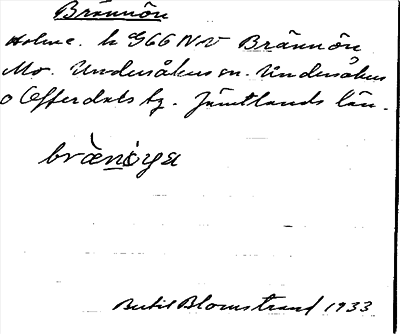 Brännön
Holme. h 966 NV Brännön
Mo. Undersåkers sn. Undersåkers
o Offerdals tg. Jämtlands län.
Bertil Blomstrand 1933